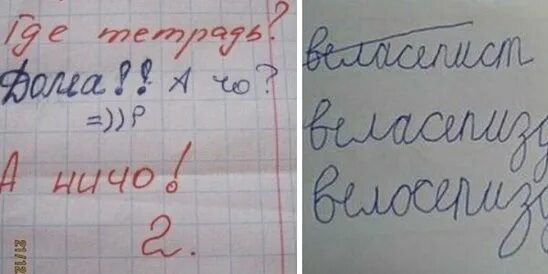 Где тетрадь?
Дома!! А чо?
=))Р
А ничо!
2.
21/12
веласепист
веласепизд
велосепизд